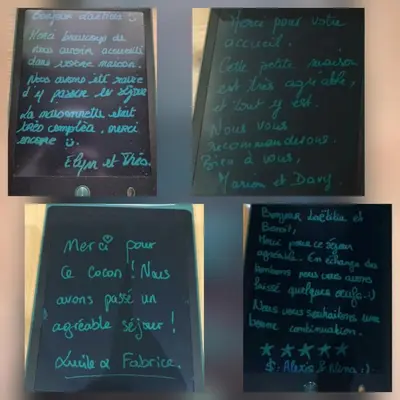 Bonjour Laëtitia :)
Merci beaucoup de
nous avoir accueilli
dans votre maison.
Nous avons été ravie
d'y passer le séjour
La maisonnette était
très complète, merci
encore :).
Elyn et
Merci pour votre
accueil.
Cette petite maison
est très agréable,
et tout y est.
Nous vous
recommanderons.
Bien à vous,
Marion et Davy.
Merci pour
ce cocon ! Nous
avons passé un
agréable séjour !
Lucile & Fabrice.
Bonjour Laëtitia et
Benoi,
Merci pour ce séjour
agréable. En échange des
bonbons nous vous avons
laissé quelques œufs :)
Nous vous souhaitons une
bonne continuation.
☆ ☆ ☆ ☆ ☆
Alexis &